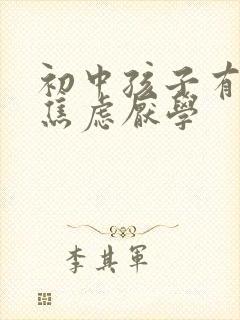 初中孩子有
焦虑厌學
李其军